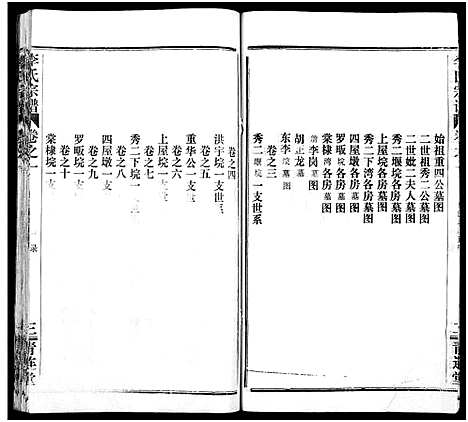 始祖重四公墓图
二世祖秀二公墓图
二世妣二夫人墓图
秀二堰垸各房墓图
上屋垸各房墓图
秀二下湾各房墓图
四屋墩各房墓图
罗畈垸各房墓图
棠棣垸各房墓图
前李岗墓图
胡正龙墓图
东李垸墓图
卷之三
秀二堰垸一支世系
卷之四
洪宇垸一支世系
卷之五
重华公一支
卷之六
上屋垸一支
卷之七
秀二下垸一支
卷之八
四屋墩一支
卷之九
罗畈垸一支
卷之十
棠棣垸一支
李氏宗谱
卷之一
录
三
青莲堂